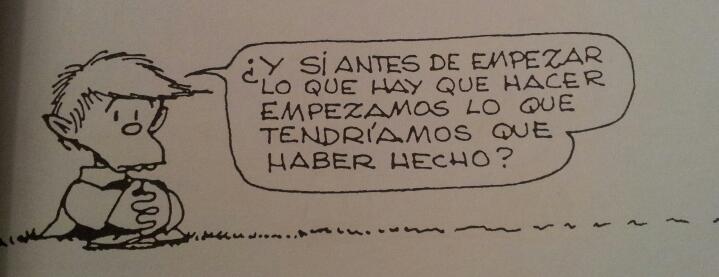 ¿Y SÍ ANTES DE EMPEZAR
LO QUE HAY QUE HACER
EMPEZAMOS LO QUE
TENDRÍAMOS QUE
HABER HECHO?